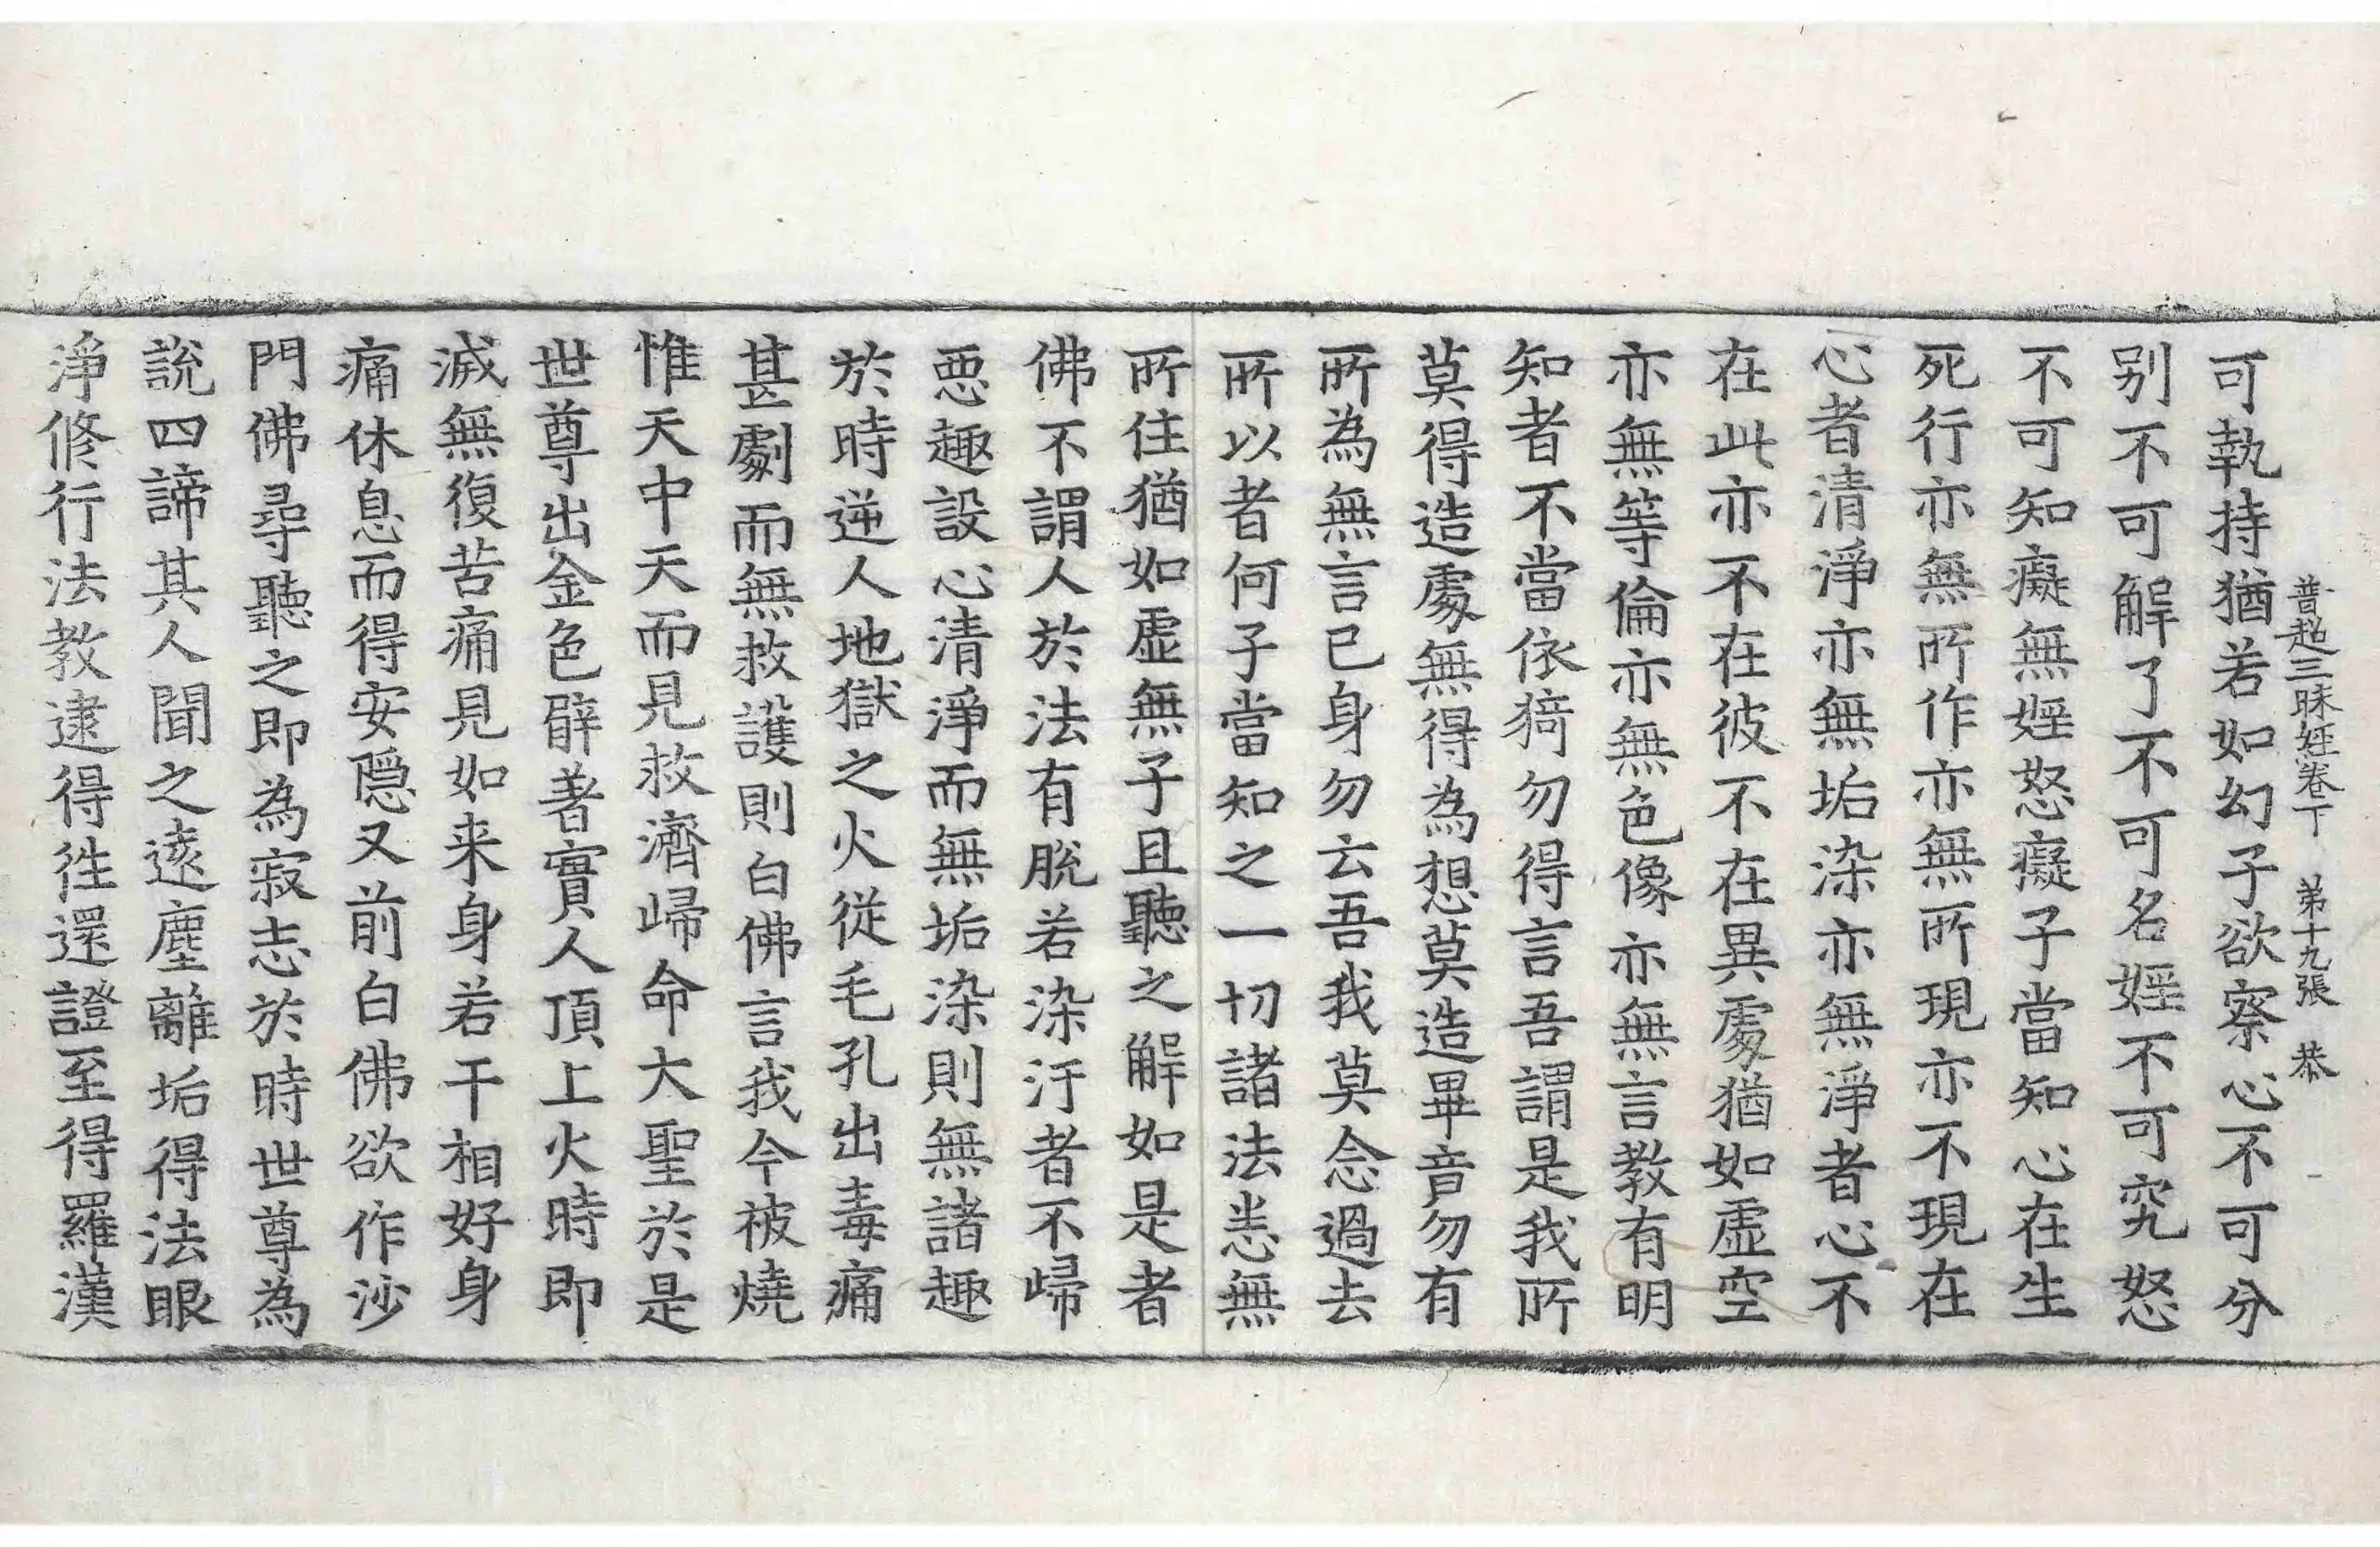 普超三昧経卷下　第十九張　恭
可執持猶若如幻子欲察心不可分
别不可解了不可名婬不可究怒
不可知癡無婬怒癡子當知心在生
死行亦無所作亦無所現亦不現在
心者清淨亦無垢染亦無淨者心不
在此亦不在彼不在異處猶如虛空
亦無等倫亦無色像亦無言教有明
知者不當依猗勿得言吾謂是我所
莫得造處無得為想莫造畢竟勿有
所為無言已身勿云吾我莫念過去
所以者何子當知之一切諸法恚無
所住猶如虛無子且聽之解如是者
佛不謂人於法有脫若染汙者不歸
惡趣設心清淨而無垢染則無諸趣
於時逆人地獄之火從毛孔出毒痛
甚劇而無救護則白佛言我今被燒
惟天中天而見救濟歸命大聖於是
世尊出金色臂著實人頂上火時即
滅無復苦痛見如来身若干相好身
痛休息而得安隱又前白佛欲作沙
門佛尋聽之即為寂志於時世尊為
說四諦其人聞之遠塵離垢得法眼
淨修行法教逮得往還證至得羅漢